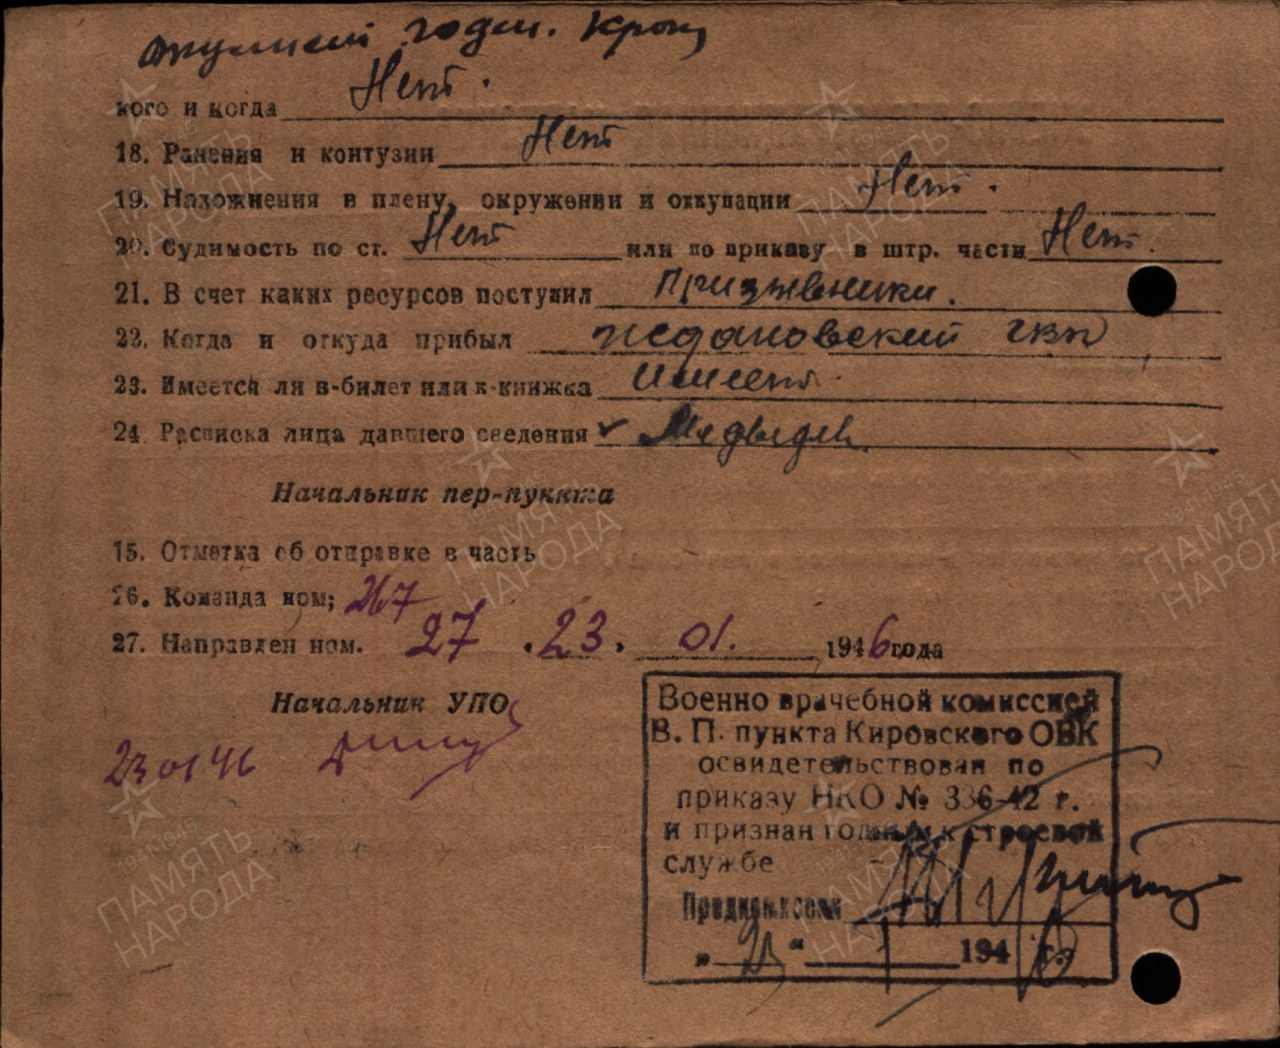 годен.
кого и когда Нет.
18. Ранения и контузии Нет
19. Нахождения в плену, окружении и оккупации Нет.
20. Судимость по ст. Нет или по приказу в штр. части Нет.
21. В счет каких ресурсов поступил Призывники.
22. Когда и откуда прибыл Ждановский ГВК
23. Имеется ли в-билет или к-книжка Имеет.
24. Расписка лица давшего сведения
Начальник пер-пункта
15. Отметка об отправке в часть
26. Команда ном; 267
27. Направлен ном. 27 . 23 , 01. 1946 года
Начальник УПО
23 01 46
Военно врачебной комиссией
В. П. пункта Кировского ОВК
освидетельствован по
приказу НКО № 336-42 г.
и признан годным к строевой
службе
Предкомиссии
„ 23 “ 1 194 г.
ПАМЯТЬ НАРОДА
1941-1945